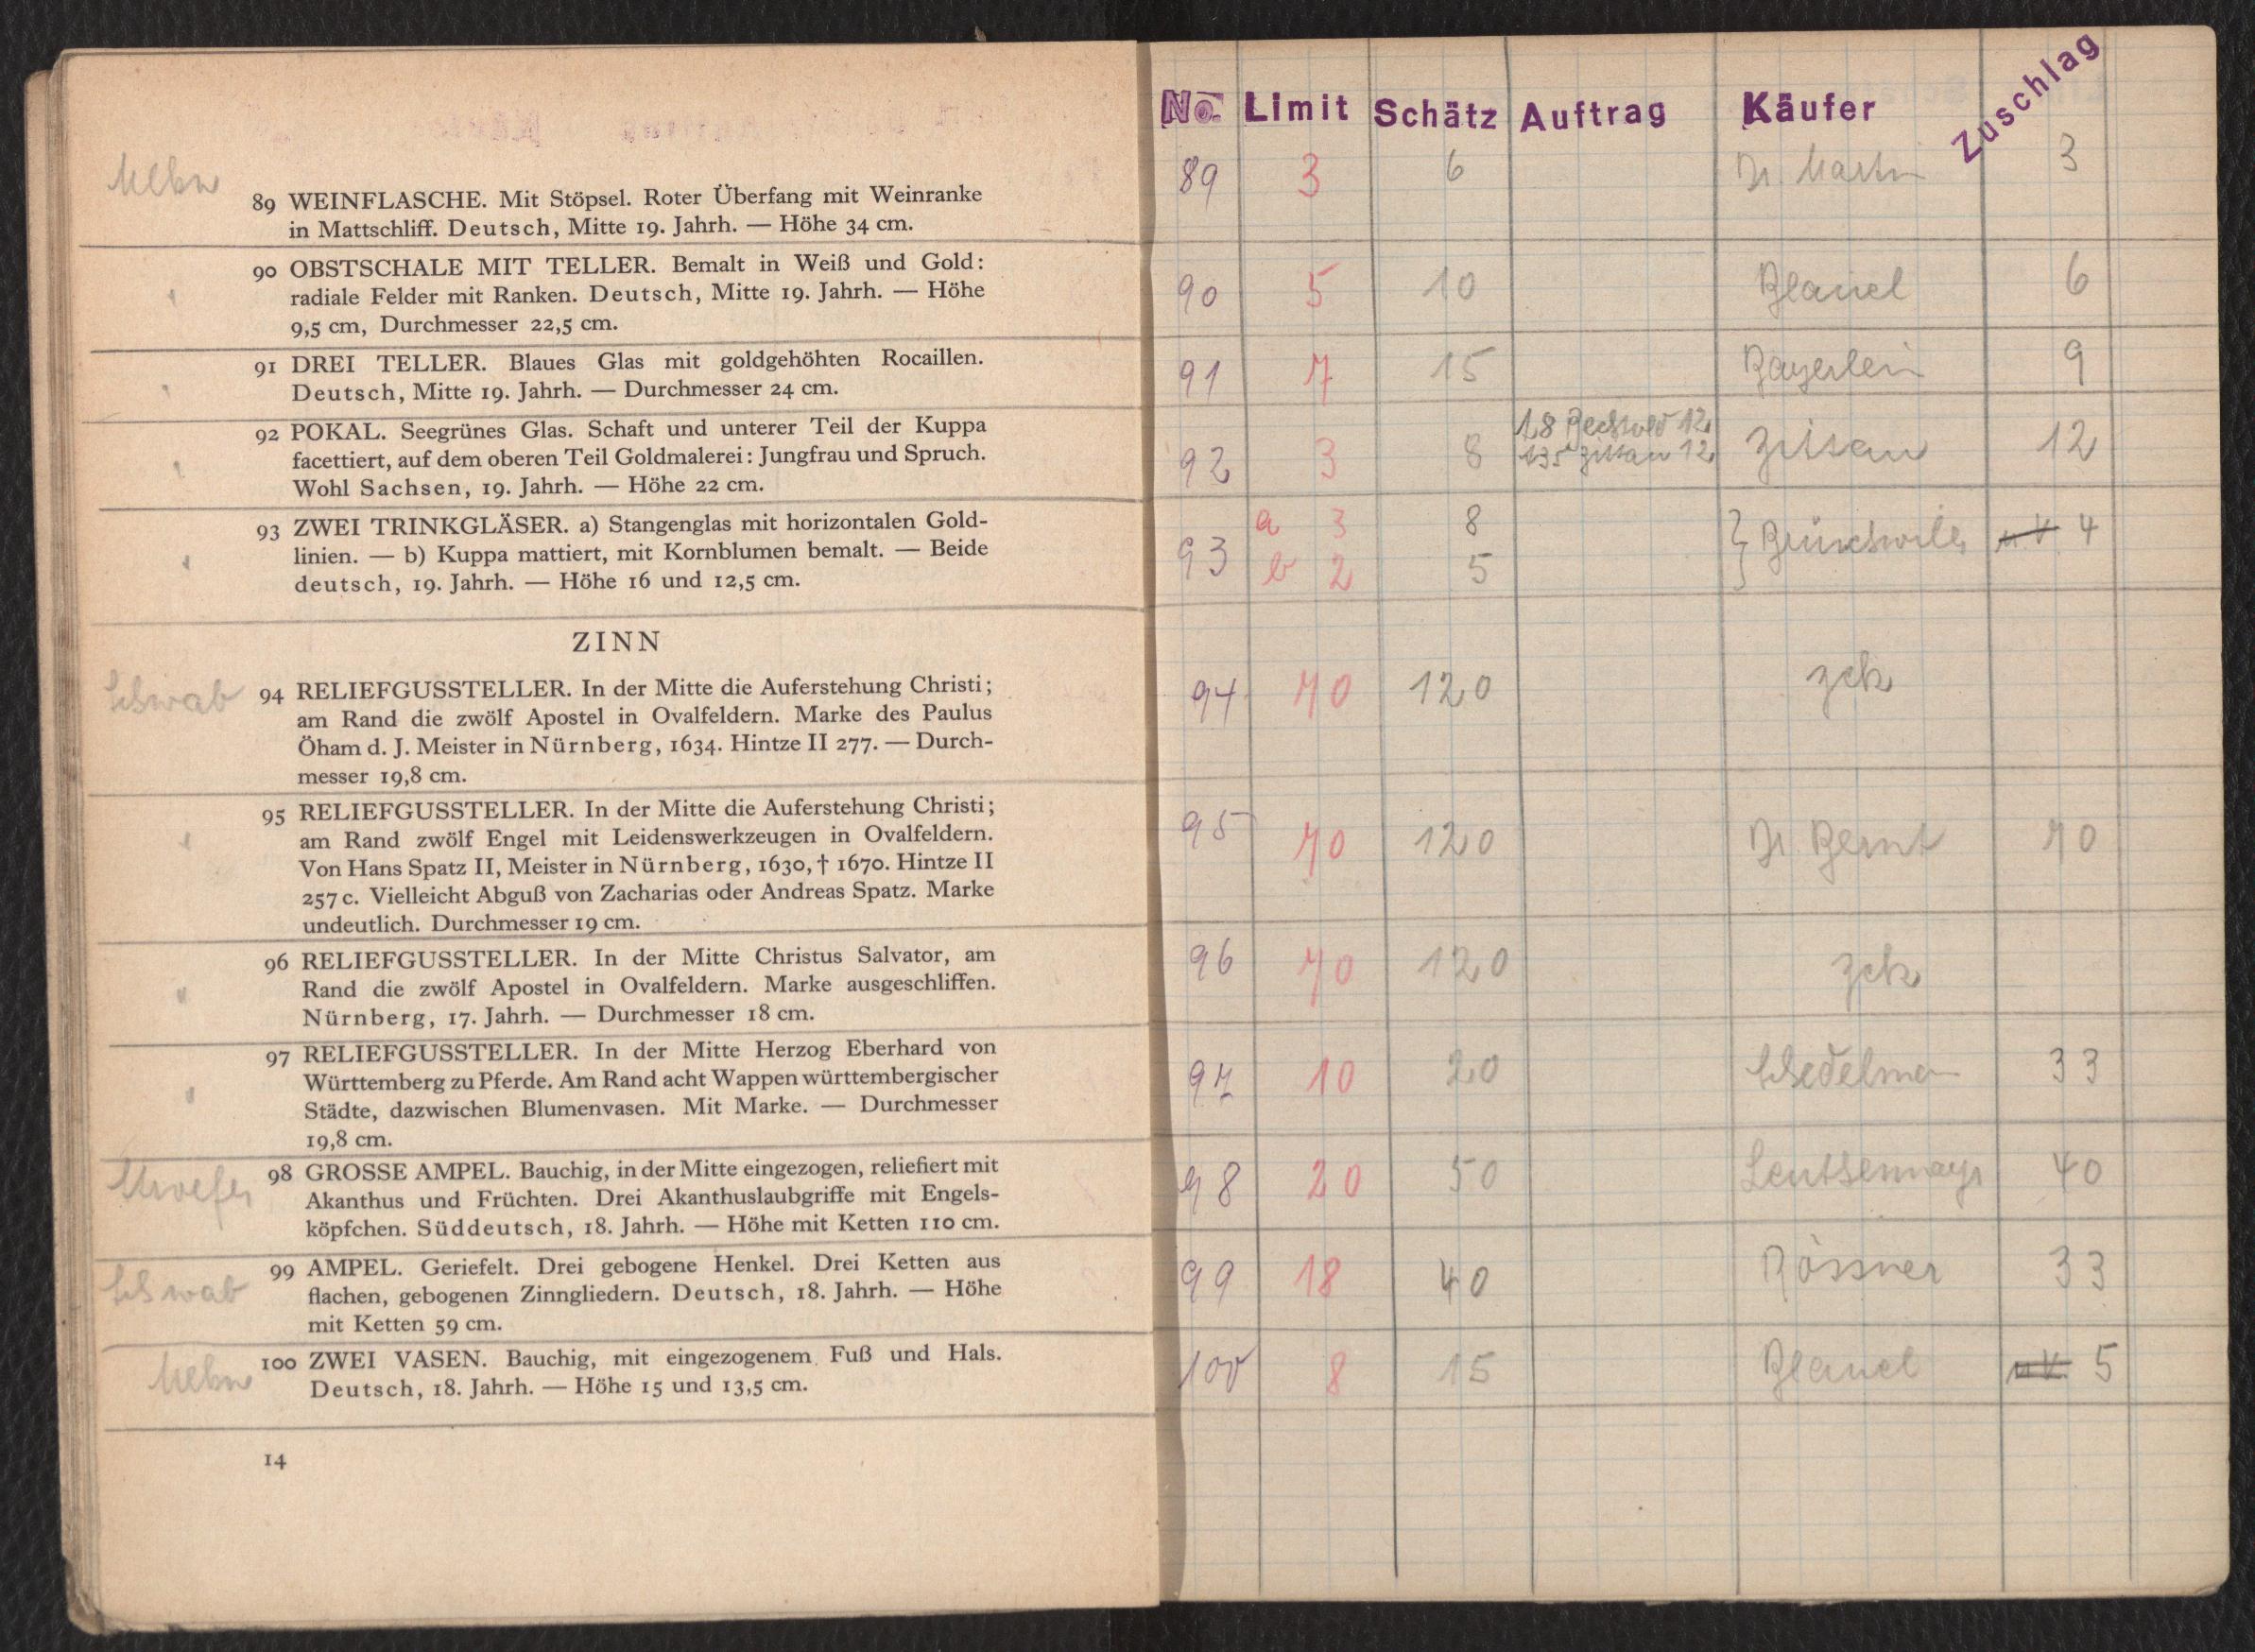 89 WEINFLASCHE. Mit Stöpsel. Roter Überfang mit Weinranke
in Mattschliff. Deutsch, Mitte 19. Jahrh. — Höhe 34 cm.
90 OBSTSCHALE MIT TELLER. Bemalt in Weiß und Gold:
radiale Felder mit Ranken. Deutsch, Mitte 19. Jahrh. — Höhe
9,5 cm, Durchmesser 22,5 cm.
91 DREI TELLER. Blaues Glas mit goldgehöhten Rocaillen.
Deutsch, Mitte 19. Jahrh. — Durchmesser 24 cm.
92 POKAL. Seegrünes Glas. Schaft und unterer Teil der Kuppa
facettiert, auf dem oberen Teil Goldmalerei: Jungfrau und Spruch.
Wohl Sachsen, 19. Jahrh. — Höhe 22 cm.
93 ZWEI TRINKGLÄSER. a) Stangenglas mit horizontalen Gold-
linien. — b) Kuppa mattiert, mit Kornblumen bemalt. — Beide
deutsch, 19. Jahrh. — Höhe 16 und 12,5 cm.
ZINN
Schwab
94 RELIEFGUSSTELLER. In der Mitte die Auferstehung Christi;
am Rand die zwölf Apostel in Ovalfeldern. Marke des Paulus
Öham d. J. Meister in Nürnberg, 1634. Hintze II 277. — Durch-
messer 19,8 cm.
"
95 RELIEFGUSSTELLER. In der Mitte die Auferstehung Christi;
am Rand zwölf Engel mit Leidenswerkzeugen in Ovalfeldern.
Von Hans Spatz II, Meister in Nürnberg, 1630, † 1670. Hintze II
257 c. Vielleicht Abguß von Zacharias oder Andreas Spatz. Marke
undeutlich. Durchmesser 19 cm.
"
96 RELIEFGUSSTELLER. In der Mitte Christus Salvator, am
Rand die zwölf Apostel in Ovalfeldern. Marke ausgeschliffen.
Nürnberg, 17. Jahrh. — Durchmesser 18 cm.
"
97 RELIEFGUSSTELLER. In der Mitte Herzog Eberhard von
Württemberg zu Pferde. Am Rand acht Wappen württembergischer
Städte, dazwischen Blumenvasen. Mit Marke. — Durchmesser
19,8 cm.
98 GROSSE AMPEL. Bauchig, in der Mitte eingezogen, reliefiert mit
Akanthus und Früchten. Drei Akanthuslaubgriffe mit Engels-
köpfchen. Süddeutsch, 18. Jahrh. — Höhe mit Ketten 110 cm.
Schwab
99 AMPEL. Geriefelt. Drei gebogene Henkel. Drei Ketten aus
flachen, gebogenen Zinngliedern. Deutsch, 18. Jahrh. — Höhe
mit Ketten 59 cm.
100 ZWEI VASEN. Bauchig, mit eingezogenem Fuß und Hals.
Deutsch, 18. Jahrh. — Höhe 15 und 13,5 cm.
14
No. Limit Schätz Auftrag Käufer Zuschlag
89 3 6 Dr. Martin 3
90 5 10 Blauel 6
91 7 15 Bayerlein 9
92 3 8 Zittau 12 Zittau 12
93 a 3 8 4
b 2 5
94 70 120 zck
95 70 120 Dr. Bernt 70
96 70 120 zck
97 10 20 33
98 20 50 40
99 18 40 Rössner 33
100 8 15 Blauel 5